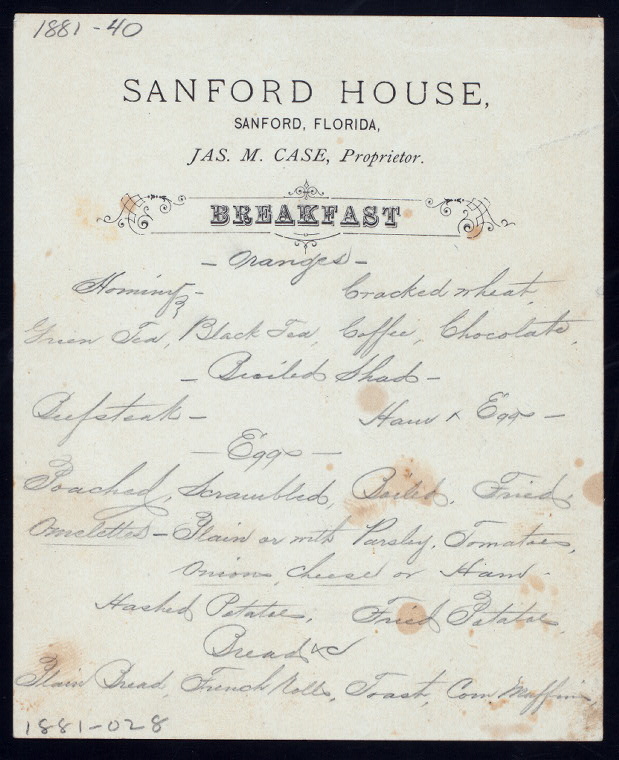 1881-40
SANFORD HOUSE,
SANFORD, FLORIDA,
JAS. M. CASE, Proprietor.
BREAKFAST
- Oranges -
Hominy - Cracked wheat,
Green Tea, Black Tea, Coffee, Chocolate,
- Broiled Shad -
Beefsteak - Ham & Eggs -
- Eggs -
Poached, Scrambled, Boiled, Fried,
Omelettes - Plain or with Parsley, Tomatoes,
Onions Cheese or Ham -
Hashed Potatoes, Fried Potatoes,
Bread &c
Plain Bread, French Rolls, Toast, Corn Muffins,
1881-028